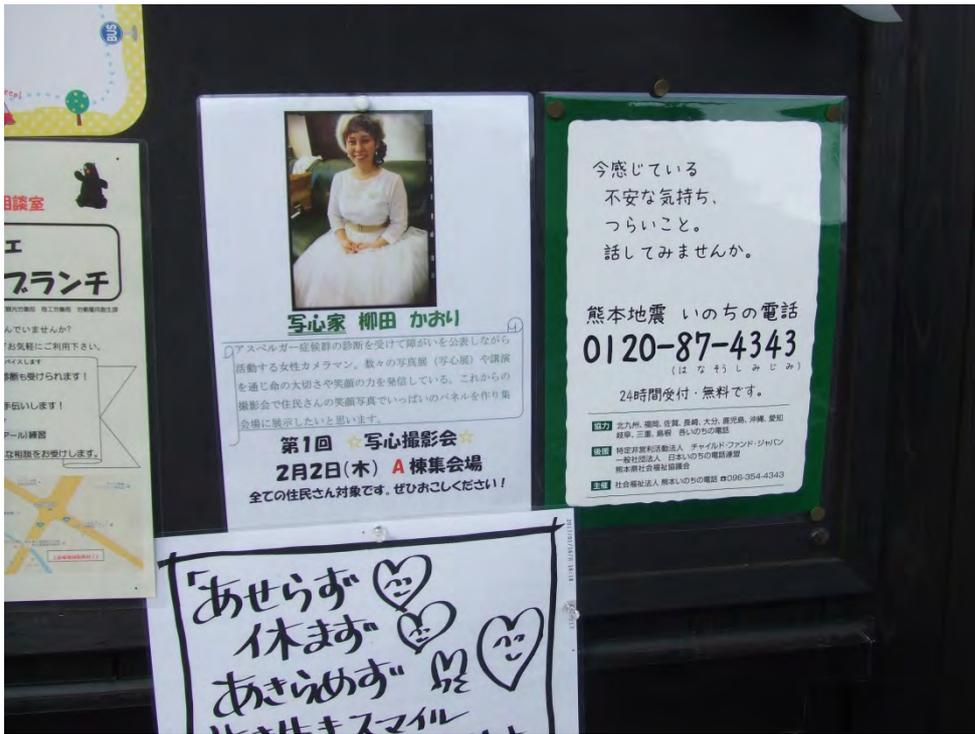 BUS
相談室
ブランチ
んでいませんか?
お気軽にご利用下さい。
診断も受けられます!
手伝いします!
練習
な相談をお受けします。
写心家 柳田 かおり
アスペルガー症候群の診断を受けて障がいを公表しながら
活動する女性カメラマン。数々の写真展(写心展)や講演
を通じ命の大切さや笑顔の力を発信している。これからの
撮影会で住民さんの笑顔写真でいっぱいのパネルを作り集
会場に展示したいと思います。
第1回 ☆写心撮影会☆
2月2日(木) A棟集会場
全ての住民さん対象です。ぜひおこしください!
今感じている
不安な気持ち、
つらいこと。
話してみませんか。
熊本地震 いのちの電話
0120-87-4343
(はなそうしみじみ)
24時間受付・無料です。
協力 北九州、福岡、佐賀、長崎、大分、鹿児島、沖縄、愛知
岐阜、三重、島根 各いのちの電話
後援 特定非営利活動法人 チャイルド・ファンド・ジャパン
一般社団法人 日本いのちの電話連盟
熊本県社会福祉協議会
主催 社会福祉法人 熊本いのちの電話 ☎096-354-4343
「あせらず
休まず
あきらめず
スマイル